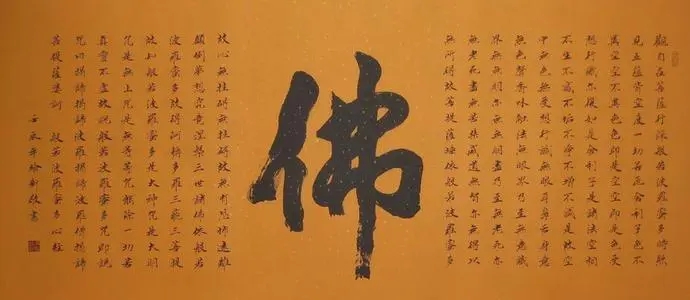 觀自在菩薩行深般若波羅蜜多時照
見五蘊皆空度一切苦厄舍利子色不
異空空不異色色即是空空即是色受
想行識亦復如是舍利子是諸法空相
不生不滅不垢不淨不增不減是故空
中無色無受想行識無眼耳鼻舌身意
無色聲香味觸法無眼界乃至無意識
界無無明亦無無明盡乃至無老死亦
無老死盡無苦集滅道無智亦無得以
無所得故菩提薩埵依般若波羅蜜多
佛
故心無罣礙無罣礙故無有恐怖遠離
顛倒夢想究竟涅槃三世諸佛依般若
波羅蜜多故得阿耨多羅三藐三菩提
故知般若波羅蜜多是大神咒是大明
咒是無上咒是無等等咒能除一切苦
真實不虛故說般若波羅蜜多咒即說
咒曰揭諦揭諦波羅揭諦波羅僧揭諦
菩提薩婆訶 般若波羅蜜多心經
壬辰年徐新書